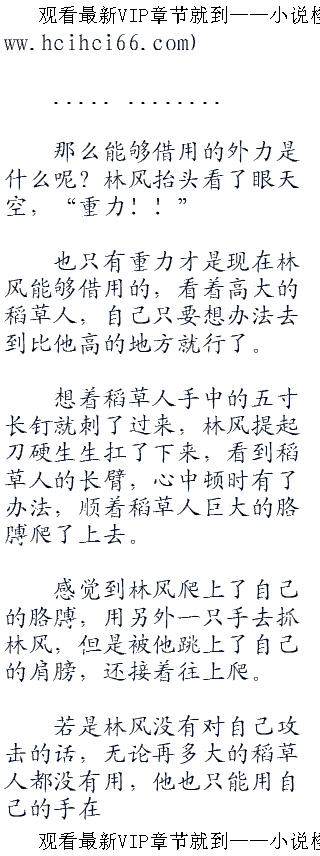 观看最新VIP章节就到——小说
ww.hcihci66.com)
..... ........
那么能够借用的外力是
什么呢？林风抬头看了眼天
空，“重力！！”
也只有重力才是现在林
风能够借用的，看着高大的
稻草人，自己只要想办法去
到比他高的地方就行了。
想着稻草人手中的五寸
长钉就刺了过来，林风提起
刀硬生生扛了下来，看到稻
草人的长臂，心中顿时有了
办法，顺着稻草人巨大的胳
膊爬了上去。
感觉到林风爬上了自己
的胳膊，用另外一只手去抓
林风，但是被他跳上了自己
的肩膀，还接着往上爬。
若是林风没有对自己攻
击的话，无论再多大的稻草
人都没有用，他也只能用自
己的手在
观看最新VIP章节就到——小说